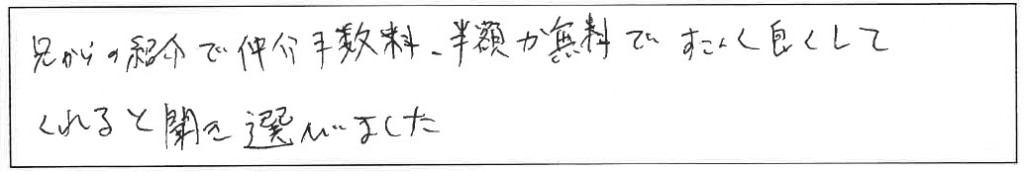 兄からの紹介で仲介手数料、半額か無料ですごく良くして
くれると聞き選びました